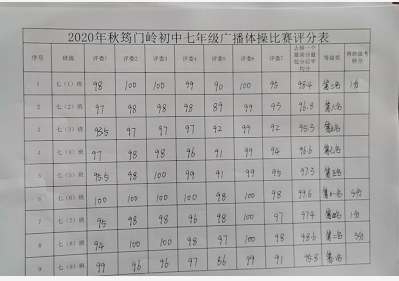 2020年秋筠门岭初中七年级广播体操比赛评分表
序号 班级 评委1 评委2 评委3 评委4 评委5 评委6 评委7 去掉一个最高分最低分后平均分 等级奖
1 七（1）班 98 100 100 99 90 100 95 98.4 1分
2 七（2）班 97 98 98 98 89 99 93 96.8
3 七（3）班 93.5 97 97 97 92 99 92 95.3
4 七（4）班 97 98 98 96 91 99 94 96.6
5 七（5）班 95.5 98 100 99 91 99 95 97.3
6 七（6）班 100 100 100 100 98 100 98 99.6 5分
7 七（7）班 95 98 98 96 98 100 97 97.4 1分
8 七（8）班 94 100 100 98 97 100 98 98.6 3分
9 七（9）班 99 96 96 97 86 99 91 95.8